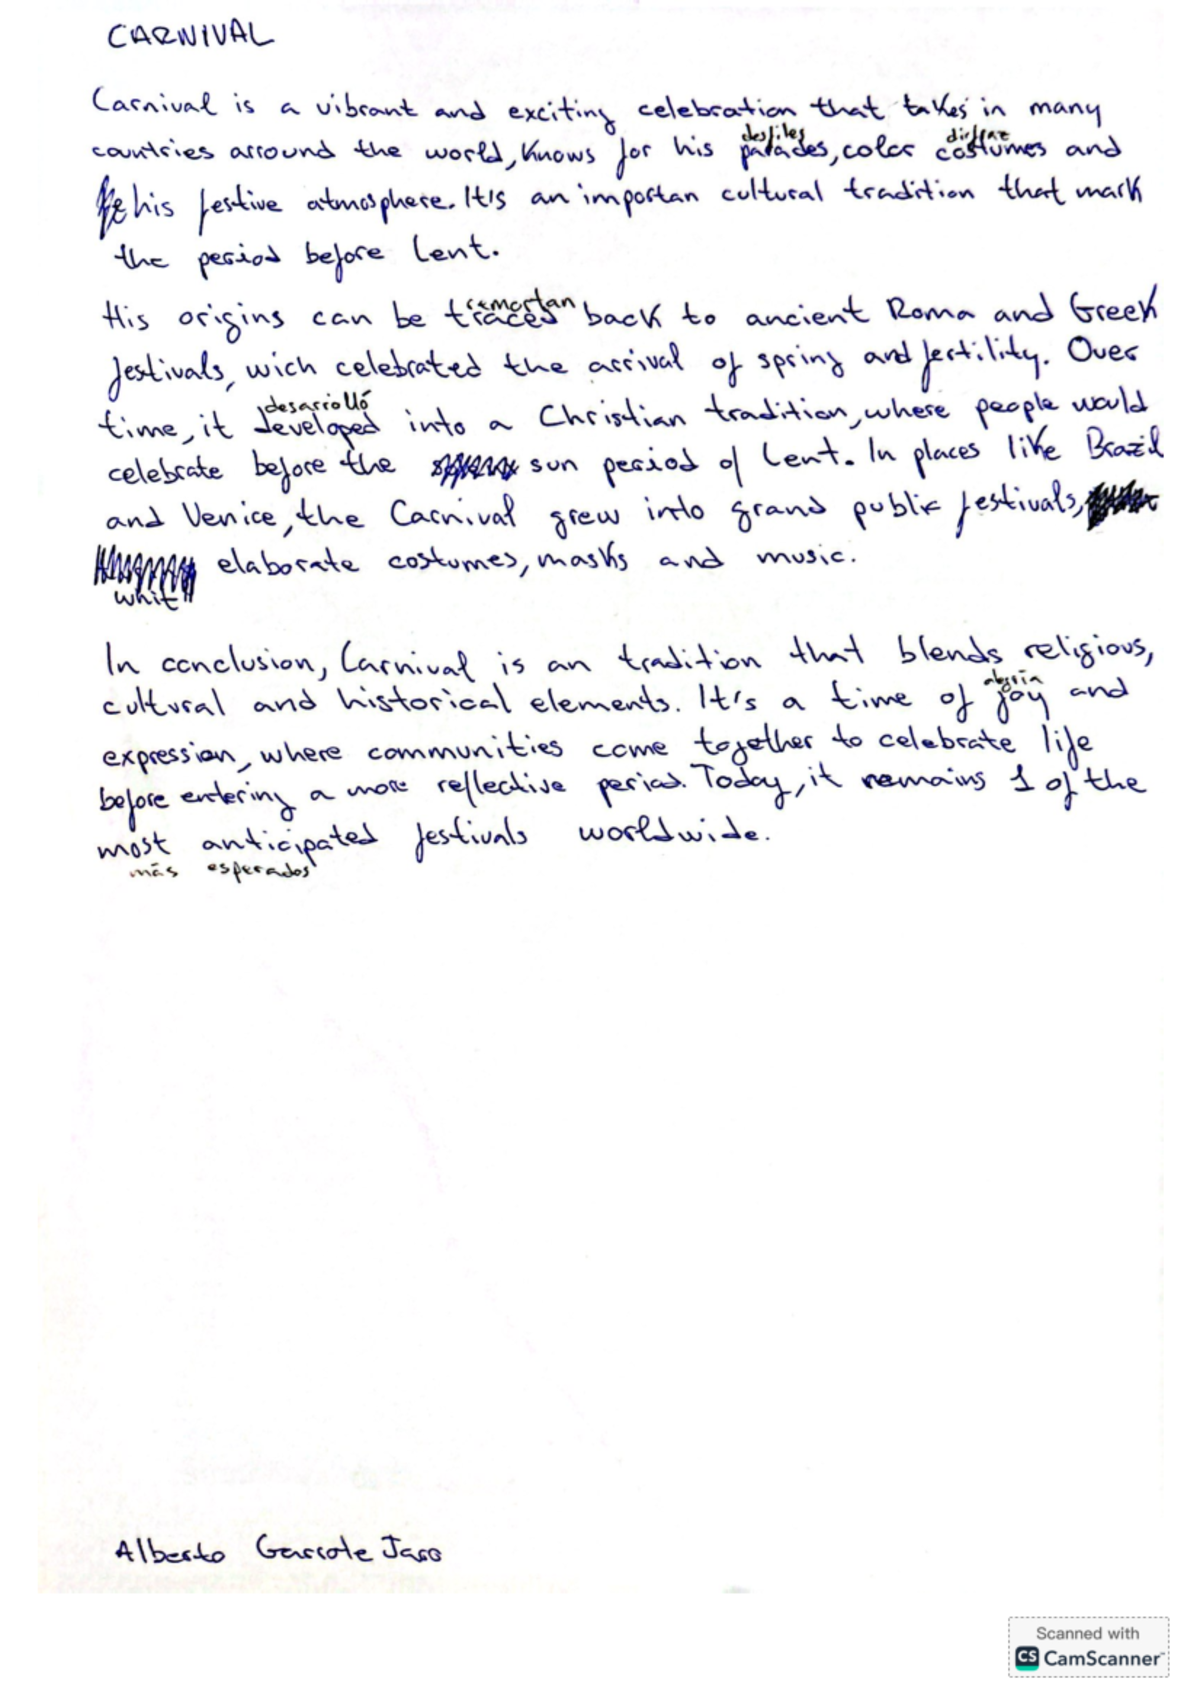 CARNIVAL
Carnival is a vibrant and exciting celebration that takes in many
desfiles disfraz
countries arround the world, Knows for his parades, color costumes and
his festive atmosphere. It's an importan cultural tradition that mark
the period before Lent.
remortan
His origins can be traces back to ancient Roma and Greek
festivals, wich celebrated the arrival of spring and fertility. Over
desarrolló
time, it developed into a Christian tradition, where people would
celebrate before the sun period of Lent. In places like Brazil
and Venice, the Carnival grew into grand public festivals,
elaborate costumes, masks and music.
whit
In conclusion, Carnival is an tradition that blends religious,
alegria
cultural and historical elements. It's a time of joy and
expression, where communities come together to celebrate life
before entering a more reflective period. Today, it remains 1 of the
most anticipated festivals worldwide.
más esperados
Alberto Garrote Jaro
Scanned with
CS CamScanner